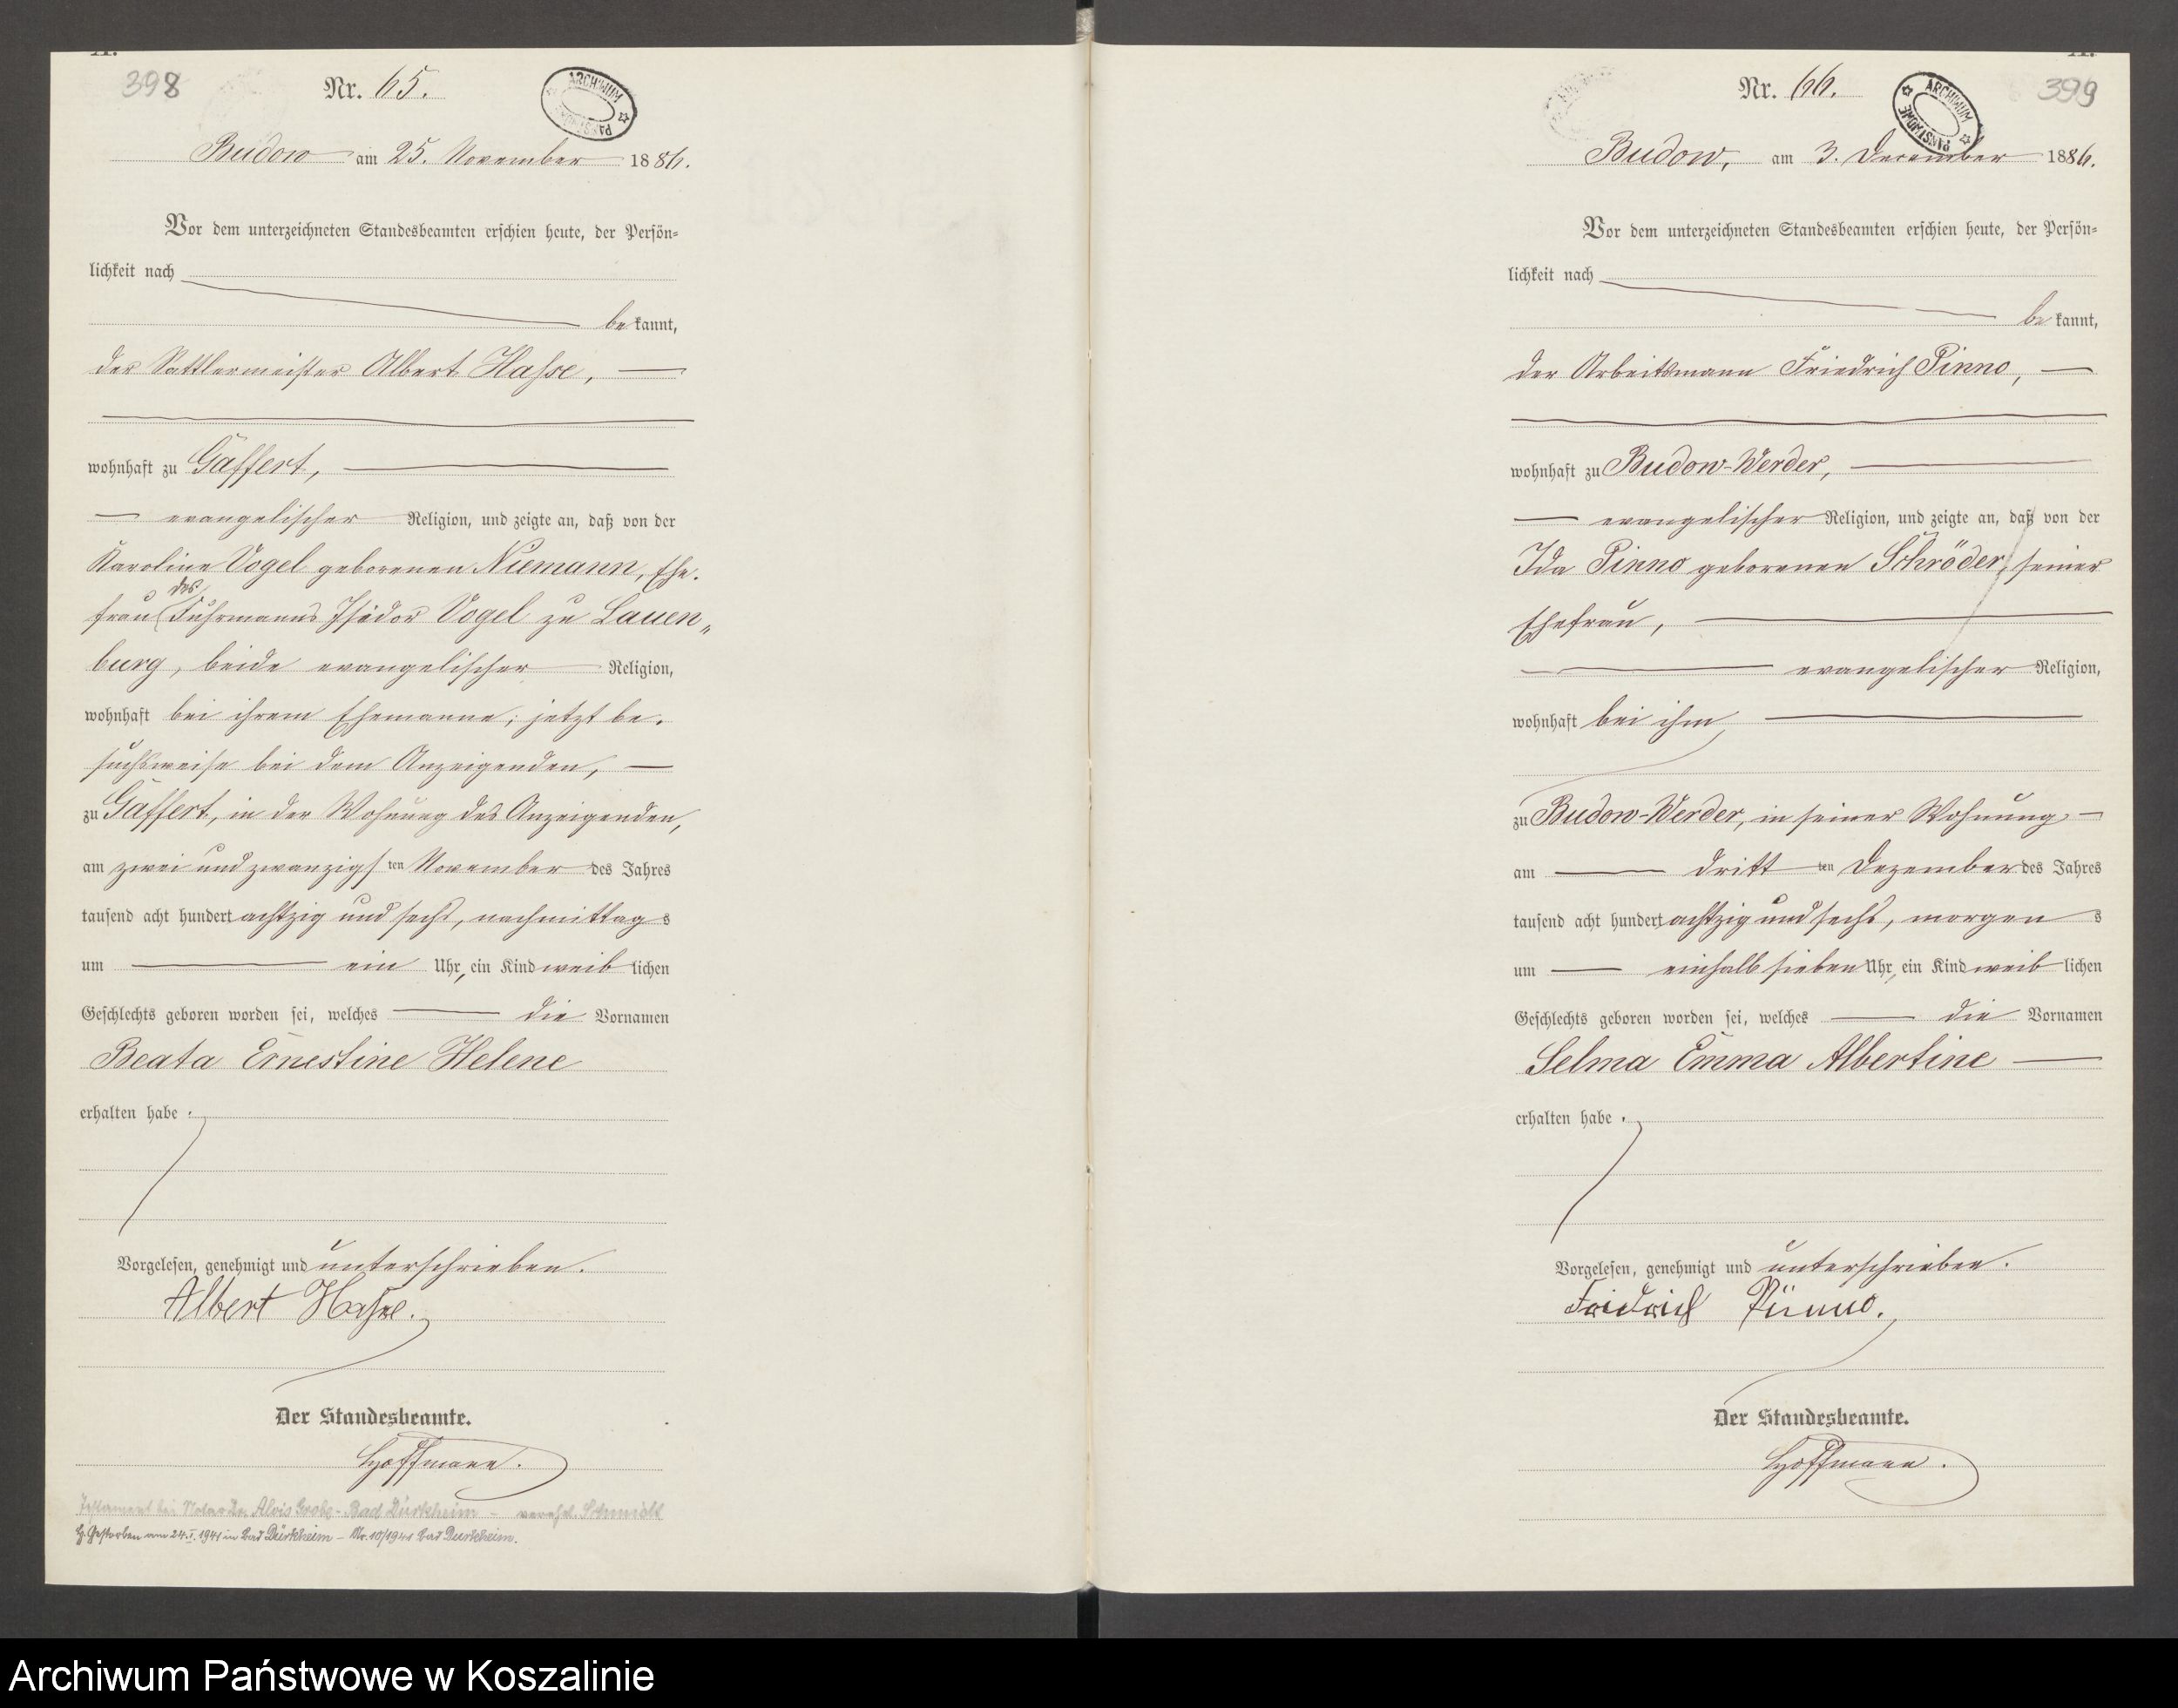 398
Nr. 65.
ARCHIWUM
PAŃSTWOWE
Budow am 25. November 1886.
Vor dem unterzeichneten Standesbeamten erschien heute, der Persön-
lichkeit nach
bekannt,
der Sattlermeister Albert Hasse,
wohnhaft zu Gaffert,
evangelischer Religion, und zeigte an, daß von der
Karoline Vogel geborenen Niemann, Ehe-
des
frau Fuhrmanns Isidor Vogel zu Lauen-
burg, beide evangelischer Religion,
wohnhaft bei ihrem Ehemanne, jetzt be-
suchsweise bei dem Anzeigenden,
zu Gaffert, in der Wohnung des Anzeigenden,
am zwei und zwanzigsten November des Jahres
tausend acht hundert achtzig und sechs, nachmittags
um ein Uhr, ein Kind weiblichen
Geschlechts geboren worden sei, welches die Vornamen
Beata Ernestine Helene
erhalten habe.
Vorgelesen, genehmigt und unterschrieben.
Albert Hasse.
Der Standesbeamte.
Hoffmann.
Testament bei Notar Dr. Alois - Bad Dürkheim - verehel. Schmidt
Gestorben am 24.I.1941 in Bad Dürkheim - Nr. 10/1941 Bad Dürkheim.
399
Nr. 66.
ARCHIWUM
PAŃSTWOWE
Budow, am 3. December 1886.
Vor dem unterzeichneten Standesbeamten erschien heute, der Persön-
lichkeit nach
bekannt,
der Arbeitsmann Friedrich Pinno,
wohnhaft zu Budow-Werder,
evangelischer Religion, und zeigte an, daß von der
Ida Pinno geborenen Schröder, seiner
Ehefrau,
evangelischer Religion,
wohnhaft bei ihm
zu Budow-Werder, in seiner Wohnung
am dritten Dezember des Jahres
tausend acht hundert achtzig und sechs, morgens
um einhalb sieben Uhr, ein Kind weiblichen
Geschlechts geboren worden sei, welches die Vornamen
Selma Emma Albertine
erhalten habe.
Vorgelesen, genehmigt und unterschrieben.
Fridrich Pinno.
Der Standesbeamte.
Hoffmann.
Archiwum Państwowe w Koszalinie